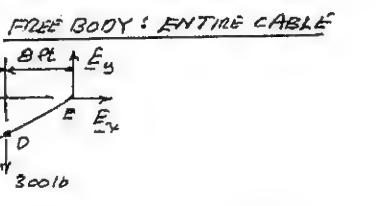 FREE BODY: ENTIRE CABLE
8 ft
E_y
E
E_x
D
300 lb